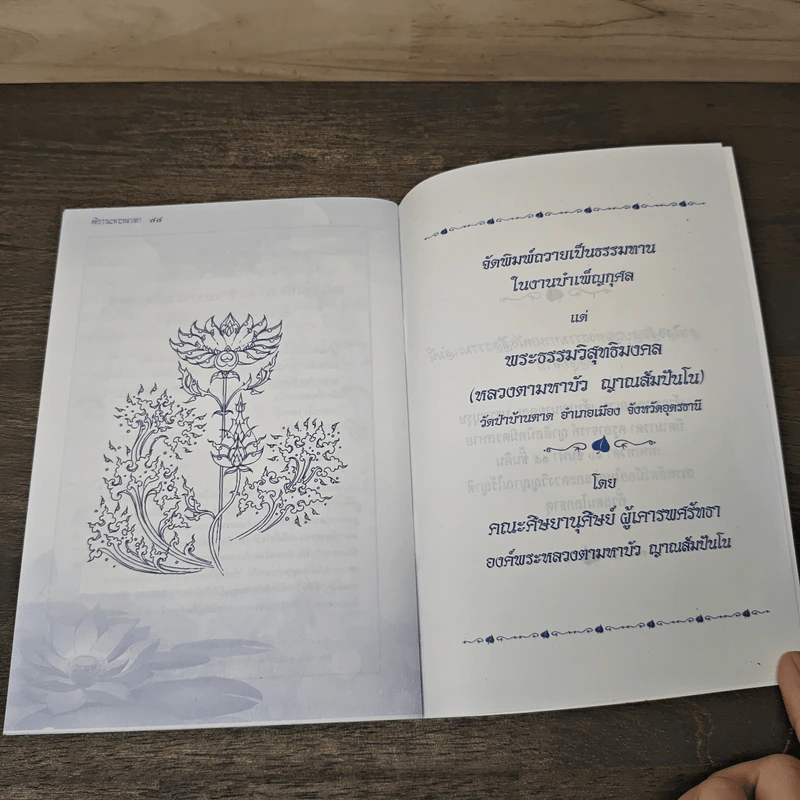 ๗๗
จัดพิมพ์ถวายเป็นธรรมทาน
ในงานบำเพ็ญกุศล
แด่
พระธรรมวิสุทธิมงคล
(หลวงตามหาบัว ญาณสัมปันโน)
วัดป่าบ้านตาด อำเภอเมือง จังหวัดอุดรธานี
โดย
คณะศิษยานุศิษย์ ผู้เคารพศรัทธา
องค์พระหลวงตามหาบัว ญาณสัมปันโน